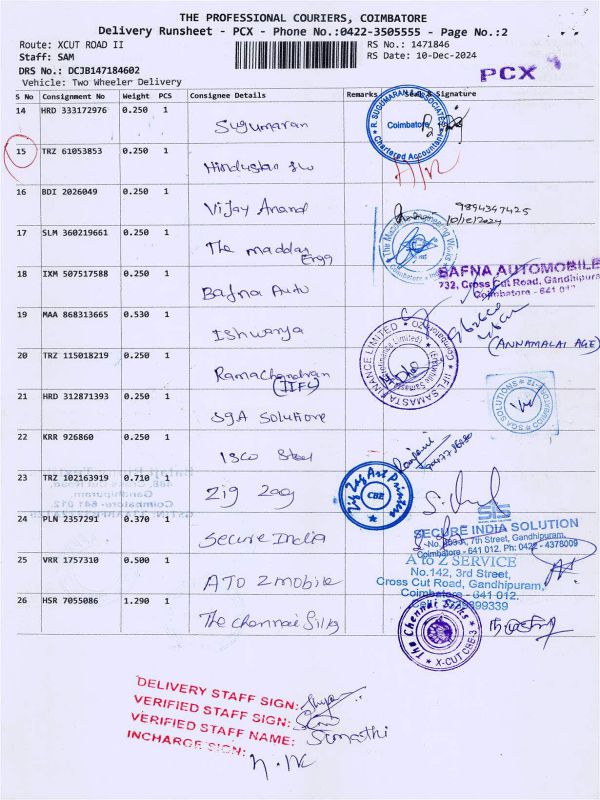 THE PROFESSIONAL COURIERS, COIMBATORE
Delivery Runsheet - PCX - Phone No.:0422-3505555 - Page No.:2
Route: XCUT ROAD II
RS No.: 1471846
Staff: SAM
RS Date: 10-Dec-2024
DRS No.: DCJB147184602
Vehicle: Two Wheeler Delivery
PCX
S No Consignment No Weight PCS Consignee Details Remarks Seal & Signature
14 HRD 333172976 0.250 1 Sugumaran
R. SUGUMARAN & ASSOCIATES
Coimbatore
Chartered Accountants
15 TRZ 61053853 0.250 1 Hindustan
16 BDI 2026049 0.250 1 Vijay Anand
9894347425
10/12/2024
17 SLM 360219661 0.250 1 The maddan Engg
18 IXM 507517588 0.250 1 Bafna Auto
BAFNA AUTOMOBILE
732, Cross Cut Road, Gandhipura
Coimbatore - 641 012
19 MAA 868313665 0.530 1 Ishwarya
(ANNAMALAI AGE)
20 TRZ 115018219 0.250 1 Ramachandran
(IIFL)
IIFL SAMASTA FINANCE LIMITED
Coimbatore
21 HRD 312871393 0.250 1 SGA Solutions
SGA SOLUTIONS
COIMBATORE-12
22 KRR 926860 0.250 1 Isco Steel
23 TRZ 102163919 0.710 1 Zig Zag
Zig Zag Art Printers
CBE
24 PLN 2357291 0.370 1 Secure India
SIS
SECURE INDIA SOLUTION
7th Street, Gandhipuram,
Coimbatore - 641 012. Ph: 0422 - 4378009
25 VRR 1757310 0.500 1 A TO Z mobile
A to Z SERVICE
No.142, 3rd Street,
Cross Cut Road, Gandhipuram,
Coimbatore - 641 012.
26 HSR 7055086 1.290 1 The chennai Silks
The Chennai Silks
X-CUT CBE-3
DELIVERY STAFF SIGN:
VERIFIED STAFF SIGN:
VERIFIED STAFF NAME: Sumathi
INCHARGE SIGN: